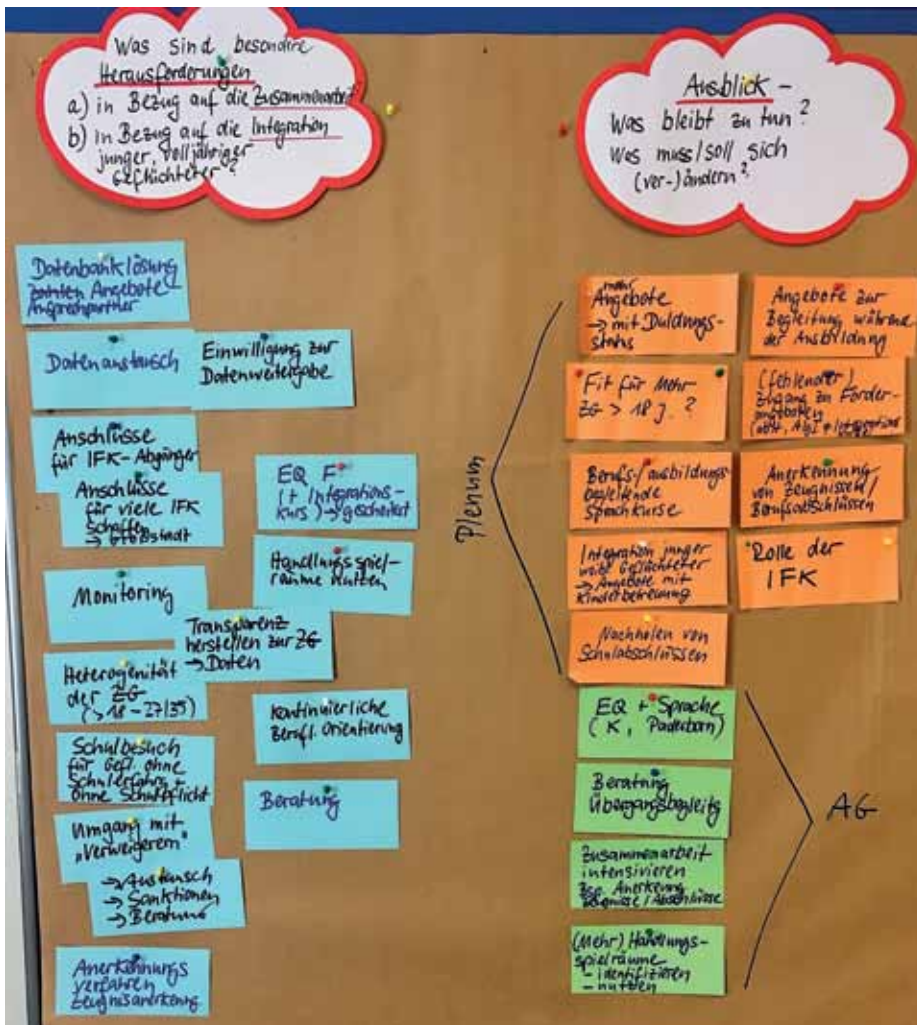 Was sind besondere
Herausforderungen
a) in Bezug auf die Zusammenarbeit
b) in Bezug auf die Integration
junger, volljähriger
Geflüchteter?
Datenbanklösung
Angebote
Ansprechpartner
Datenaustausch
Einwilligung zur
Datenweitergabe
Anschlüsse
für IFK-Abgänger
Anschlüsse
für viele IFK
schaffen
→ Großstadt
EQ F
(+ Integrations-
kurs) → gescheitert
Handlungsspiel-
räume nutzen
Monitoring
Transparenz
herstellen zur ZG
→ Daten
Heterogenität
der ZG
(→ 18-27/35)
Kontinuierliche
Berufl. Orientierung
Schulbesuch
für Gefl. ohne
Schulerfahrg. +
ohne Schulpflicht
Beratung
Umgang mit
„Verweigerern"
→ Austausch
→ Sanktionen
→ Beratung
Anerkennungs
verfahren
Zeugnisanerkenng
Ausblick -
Was bleibt zu tun?
Was muss/soll sich
(ver-)ändern?
Plenum
mehr
Angebote
→ mit Duldungs-
status
Angebote zur
Begleitung während
der Ausbildung
Fit für Mehr
ZG > 18 J. ?
(fehlender)
Zugang zu Förder-
angeboten
Berufs-/ausbildungs-
begleitende
Sprachkurse
Anerkennung
von Zeugnissen/
Berufsabschlüssen
Integration junger
weibl. Geflüchteter
→ Angebote mit
Kinderbetreuung
Rolle der
IFK
Nachholen von
Schulabschlüssen
EQ + Sprache
(K, Paderborn)
Beratung
Übergangsbegleitg
AG
Zusammenarbeit
intensivieren
Anerkenng
Zeugnisse/Abschlüsse
(Mehr) Handlungs-
spielräume
- identifizieren
- nutzen